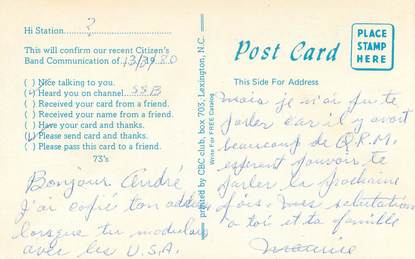 Hi Station ?
This will confirm our recent Citizen's
Band Communication of
( ) Nice talking to you.
(✓) Heard you on channel SSB
( ) Received your card from a friend.
( ) Received your name from a friend.
( ) Have your card and thanks.
(✓) Please send card and thanks.
( ) Please pass this card to a friend.
73's
Bonjour André
J'ai copié ton
lorsque tu modulais
avec les U.S.A.
printed by CBC club, box 703, Lexington, N.C.
Write For FREE Catalog
Post Card
PLACE
STAMP
HERE
This Side For Address
mais je n'ai pu te
parler car il y avait
beaucoup de Q.R.M.
esperent pouvoir te
parler la prochaine
fois. Mes salutations
a toi et ta famille
Maurice